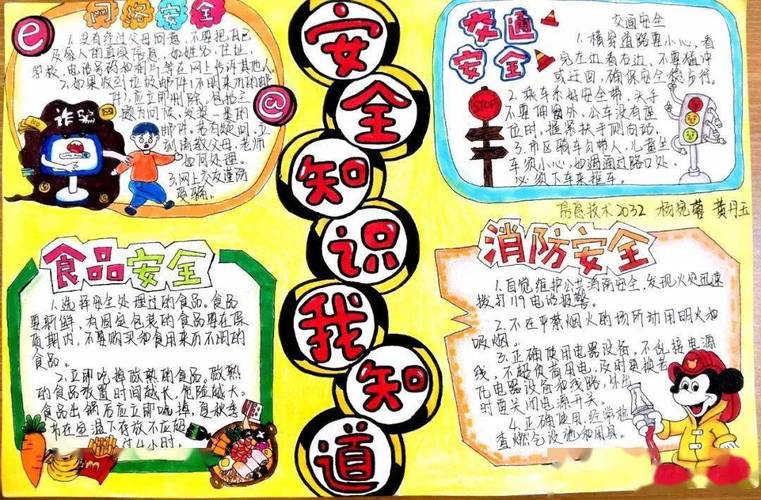 网络安全
1.没有经过父母同意,不要把自己
及家人的真实信息,如姓名,住址,
学校,电话号码和相片等在网上告诉其他人
2.如果收到垃圾邮件(不明来历的邮
件),应立即删除。
疑问,立
刻请教父母、老师
如何处理。
3.网上交友谨防
受骗。
诈骗
安全知识我知道
交通安全
交通安全
1.横穿道路要小心,看
完左边看右边,不要猛冲
或迂回,确保安全
2.乘车系好安全带,头手
不要伸窗外,公车没有座
位时,握紧扶手侧向站。
3.市区骑车勿带人,儿童坐
车须小心,如遇通过路口处
必须下车来推车。
STOP
信息技术2032 杨宛蓉 黄丹玉
食品安全
1.选择安全处理过的食品。食品
要新鲜,有固定包装的食品要在保
质期内,不要购买和食用来历不明的食
品。
2.立即吃掉做熟的食品。做熟
的食品放置时间越长,危险越大。
食品出锅后应立即吃掉,食
物在室温下存放不应超
过4小时。
消防安全
1.自觉维护公共消防安全,发现火灾迅速
拨打119电话报警。
2.不在严禁烟火的场所动用明火和
吸烟。
3.正确使用电器设备,不乱接电源
线,不超负荷用电,及时更换老
化电器设备和线路,外出
时要关闭电源开关。
4.正确使用、经常检
查燃气设施和用具。